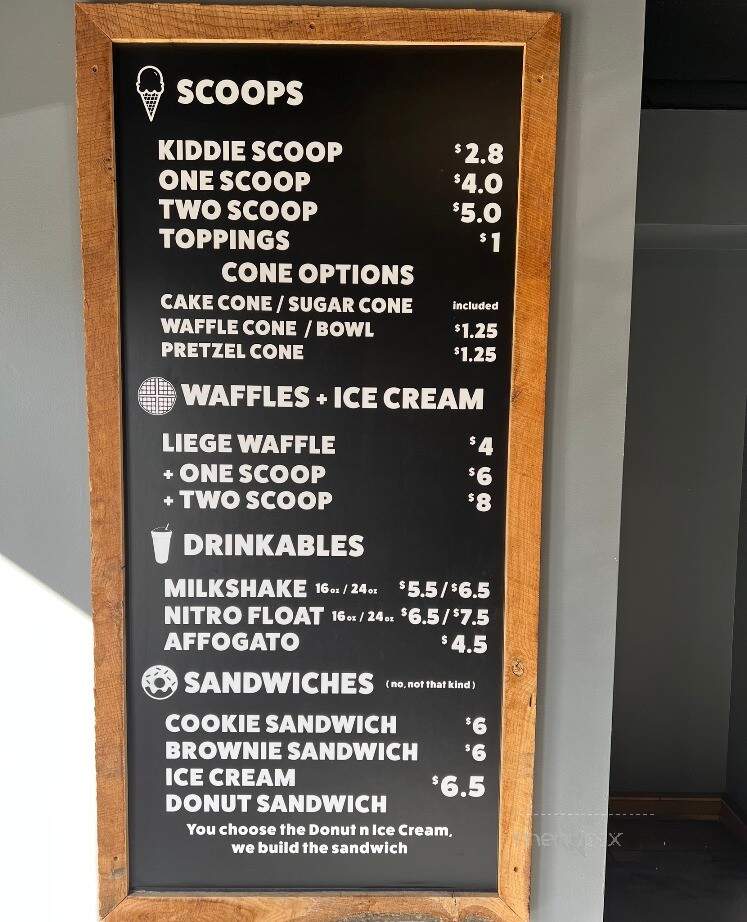 SCOOPS
KIDDIE SCOOP $2.8
ONE SCOOP $4.0
TWO SCOOP $5.0
TOPPINGS $1
CONE OPTIONS
CAKE CONE / SUGAR CONE included
WAFFLE CONE / BOWL $1.25
PRETZEL CONE $1.25
WAFFLES + ICE CREAM
LIEGE WAFFLE $4
+ ONE SCOOP $6
+ TWO SCOOP $8
DRINKABLES
MILKSHAKE 16oz / 24oz $5.5 / $6.5
NITRO FLOAT 16oz / 24oz $6.5 / $7.5
AFFOGATO $4.5
SANDWICHES (no, not that kind)
COOKIE SANDWICH $6
BROWNIE SANDWICH $6
ICE CREAM
DONUT SANDWICH $6.5
You choose the Donut n Ice Cream,
we build the sandwich